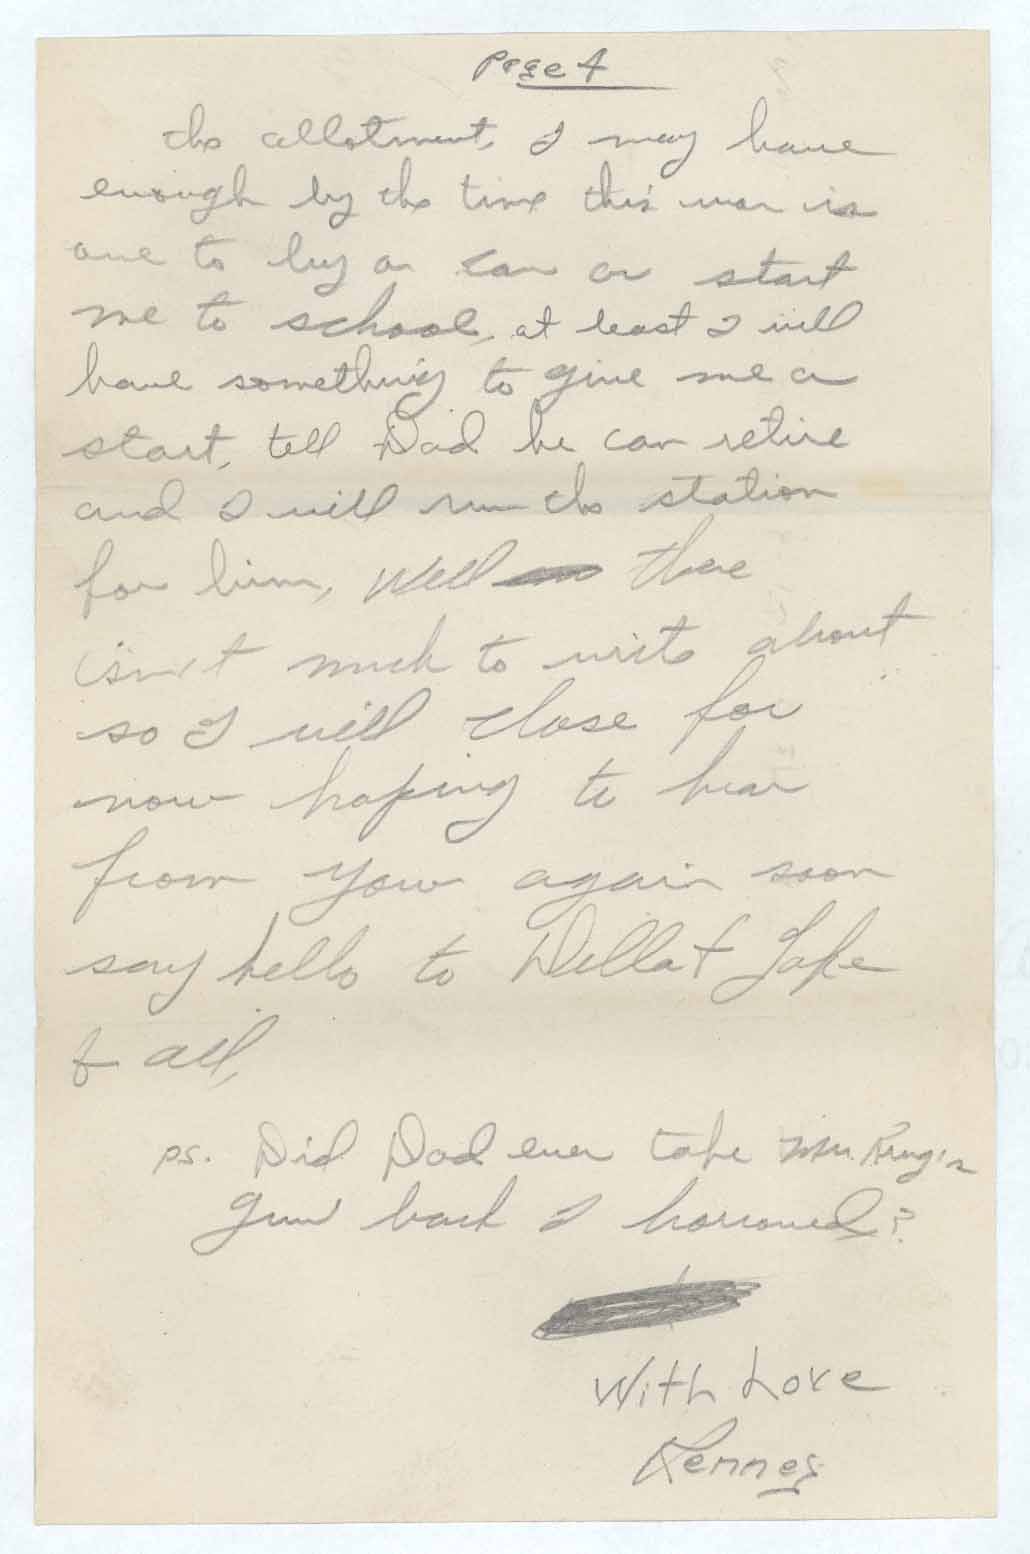 Page 4
the allotment, I may have
enough by the time this war is
over to buy a car or start
me to school, at least I will
have something to give me a
start, tell Dad he can retire
and I will run the station
for him, Well there
isn't much to write about
so I will close for
now hoping to hear
from you again soon
say hello to Della + Jake
& all,
ps. Did Dad ever take Mr.
gun back I borrowed?
With Love